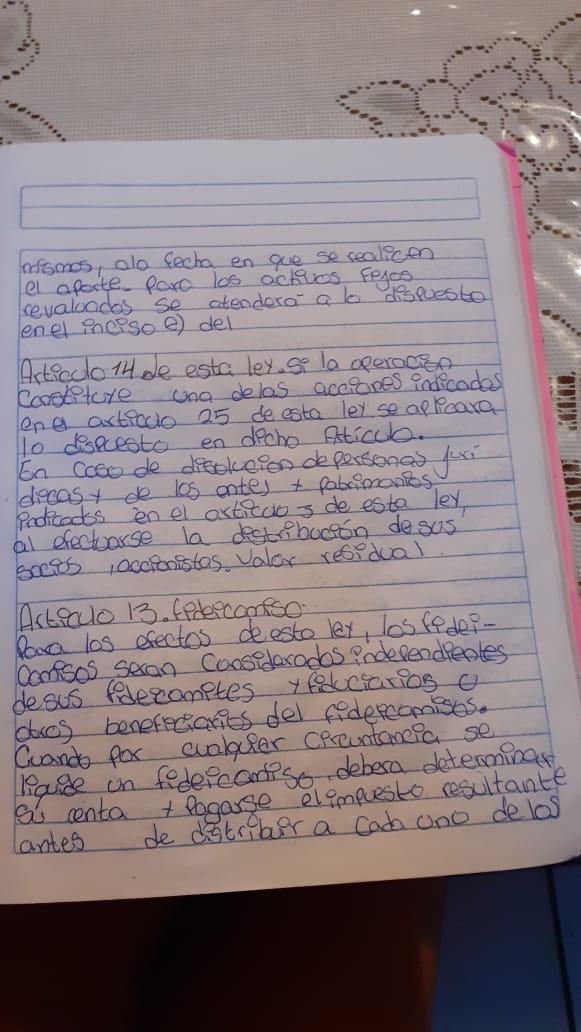 mismos, ala fecha en que se realicen
el aporte. para los activos fijos
revaluados se atendera a lo dispuesto
en el inciso e) del
Articulo 14 de esta ley. Si la operación
Constituye una delas acciones indicadas
en el articulo 25 de esta ley se aplicara
lo dispuesto en dicho Aticulo.
En Caso de disolucion de personas juri
dicas y de los entes y patrimonios
indicados en el articulo 5 de esta ley,
al efectuarse la distribución de sus
socios, accionistas. Valor residual.
Articulo 13. fideicomiso.
Para los efectos de esta ley, los fidei-
comisos seran Considerados independientes
de sus y fiduciarios o
otros beneficiarios del fideicomisos.
Cuando por cualquier circuntancia se
liquide un fideicomiso, debera determinar
su renta y Pagarse el impuesto resultante
antes de distribuir a Cada uno de las